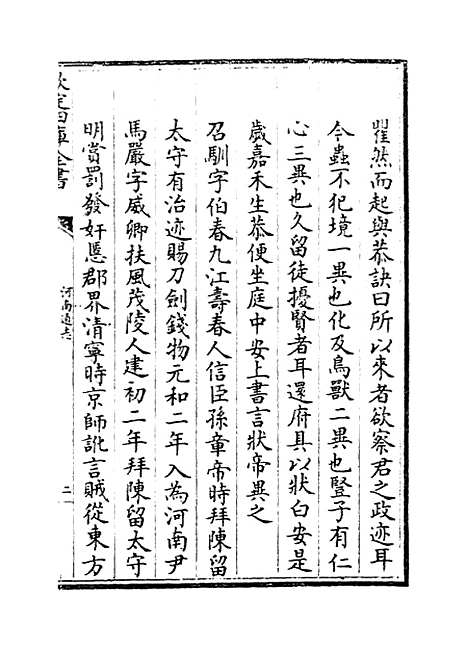 瞿然而起與恭訣曰所以來者欲察君之政迹耳
今蟲不犯境一異也化及鳥獸二異也豎子有仁
心三異也久留徒擾賢者耳還府具以狀白安是
歲嘉禾生恭便坐庭中安上書言狀帝異之
召馴字伯春九江壽春人信臣孫章帝時拜陳留
太守有治迹賜刀劍錢物元和二年入為河南尹
馬嚴字威卿扶風茂陵人建初二年拜陳留太守
明賞罰發奸慝郡界清寧時京師訛言賊從東方
欽定四庫全書
河南通志